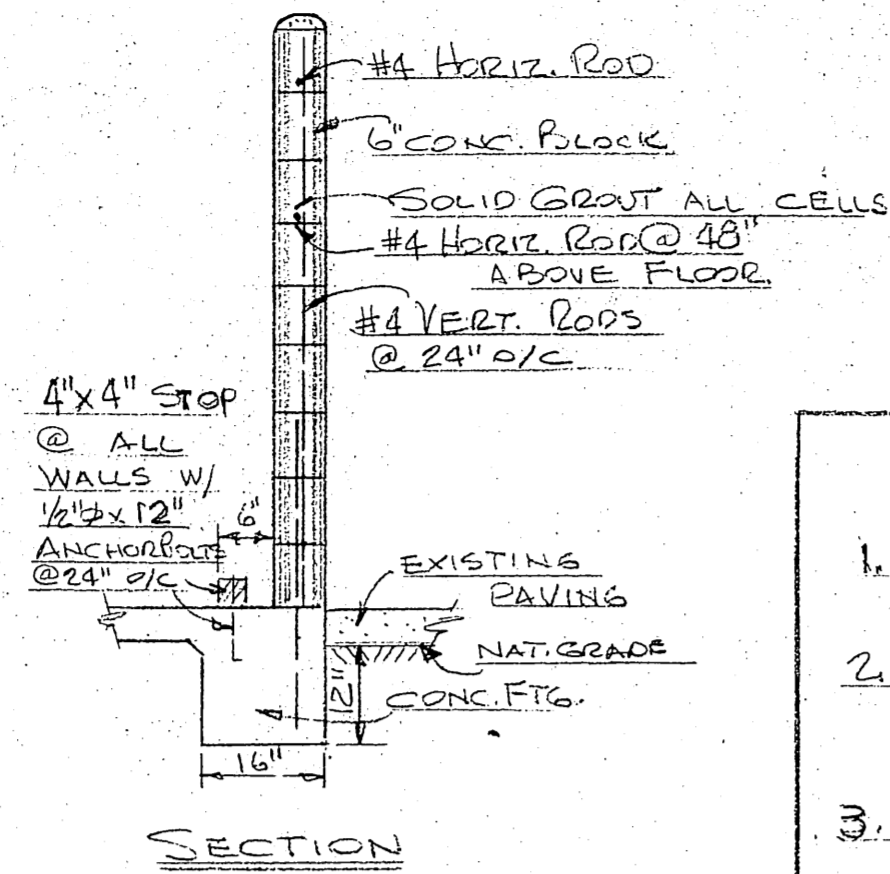 #4 HORIZ. ROD
6" CONC. BLOCK
SOLID GROUT ALL CELLS
#4 HORIZ. ROD @ 48"
ABOVE FLOOR.
#4 VERT. RODS
@ 24" O/C
4"x4" STOP
@ ALL
WALLS W/
1/2"ϕx12"
ANCHORBOLTS
@24" O/C
6"
EXISTING
PAVING
NAT. GRADE
12"
CONC. FTG.
16"
SECTION
1.
2.
3.